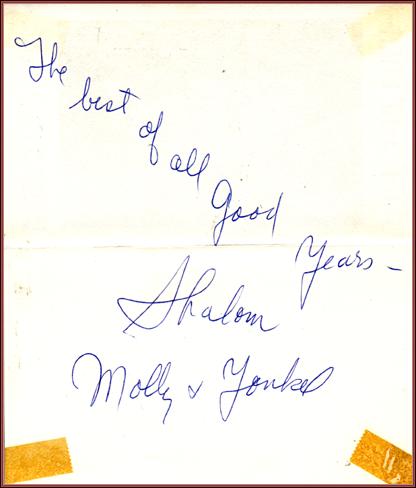 The
best
of
all
good
Years -
Shalom
Molly & Yonkel